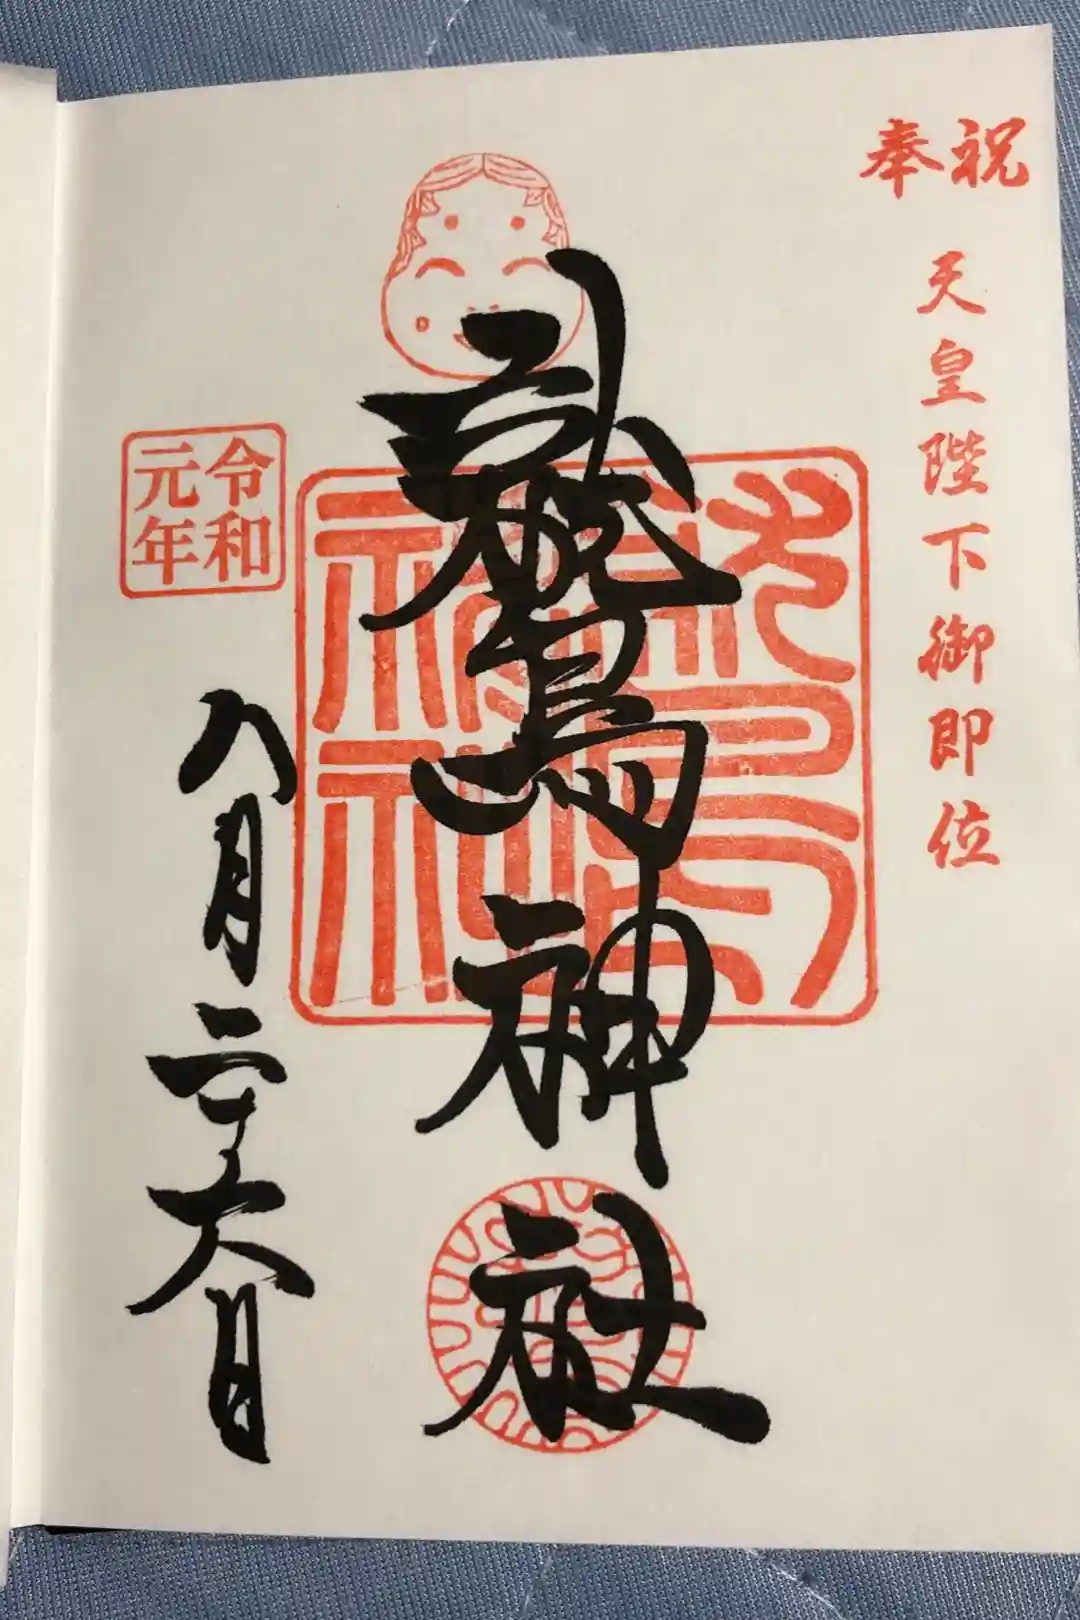 奉祝
天皇陛下御即位
鷲神社
鷲神社
令和
元年
八月二十六日